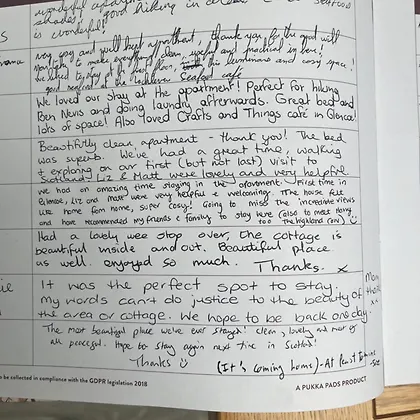 wonderful
good hiking in
is wonderful!
very cosy and well kept apartment, thank you for the good
to make everything clean, useful and practical in here!
We loved our stay at the apartment! Perfect for hiking
Ben Nevis and doing laundry afterwards. Great bed and
lots of space! Also loved Crafts and Things café in Glencoe!
Beautifully clean apartment - Thank you! The bed
was superb. We've had a great time, walking
+ exploring on our first (but not last) visit to
Scotland. Liz & Matt were lovely and very helpful.
We had an amazing time staying in the apartment. First time in
Liz and Matt were very helpful & welcoming. The house felt
like home from home, super cosy! Going to miss the incredible views
and have recommended my friends & family to stay here (also to meet
the highland cow)
Had a lovely wee stop over, the cottage is
beautiful inside and out. Beautiful place
as well. enjoyed so much. Thanks. x
It was the perfect spot to stay.
My words can't do justice to the beauty of
the area or cottage. We hope to be back one day.
The most beautiful place we've ever stayed! Clean, lovely and most of
all peaceful. Hope to stay again next time in Scotland!
Thanks
(It's coming home) - At least
to be collected in compliance with the GDPR legislation 2018
A PUKKA PADS PRODUCT